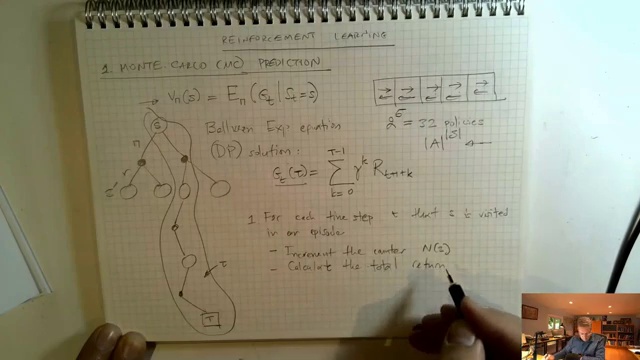 REINFORCEMENT LEARNING
1. MONTE-CARLO (MC) PREDICTION
→ Vπ(s) = Eπ(Gt | St=s)
Bellman Exp equation
(DP) solution:
Gt(τ) = Σ_{k=0}^{T-1} γ^k R_{t+1+k}
2^5 = 32 policies
|A|^|S| ←
S
π
r
s'
τ
T
1 For each time step t that s is visited
in an episode
- Increment the counter N(s)
- Calculate the total return